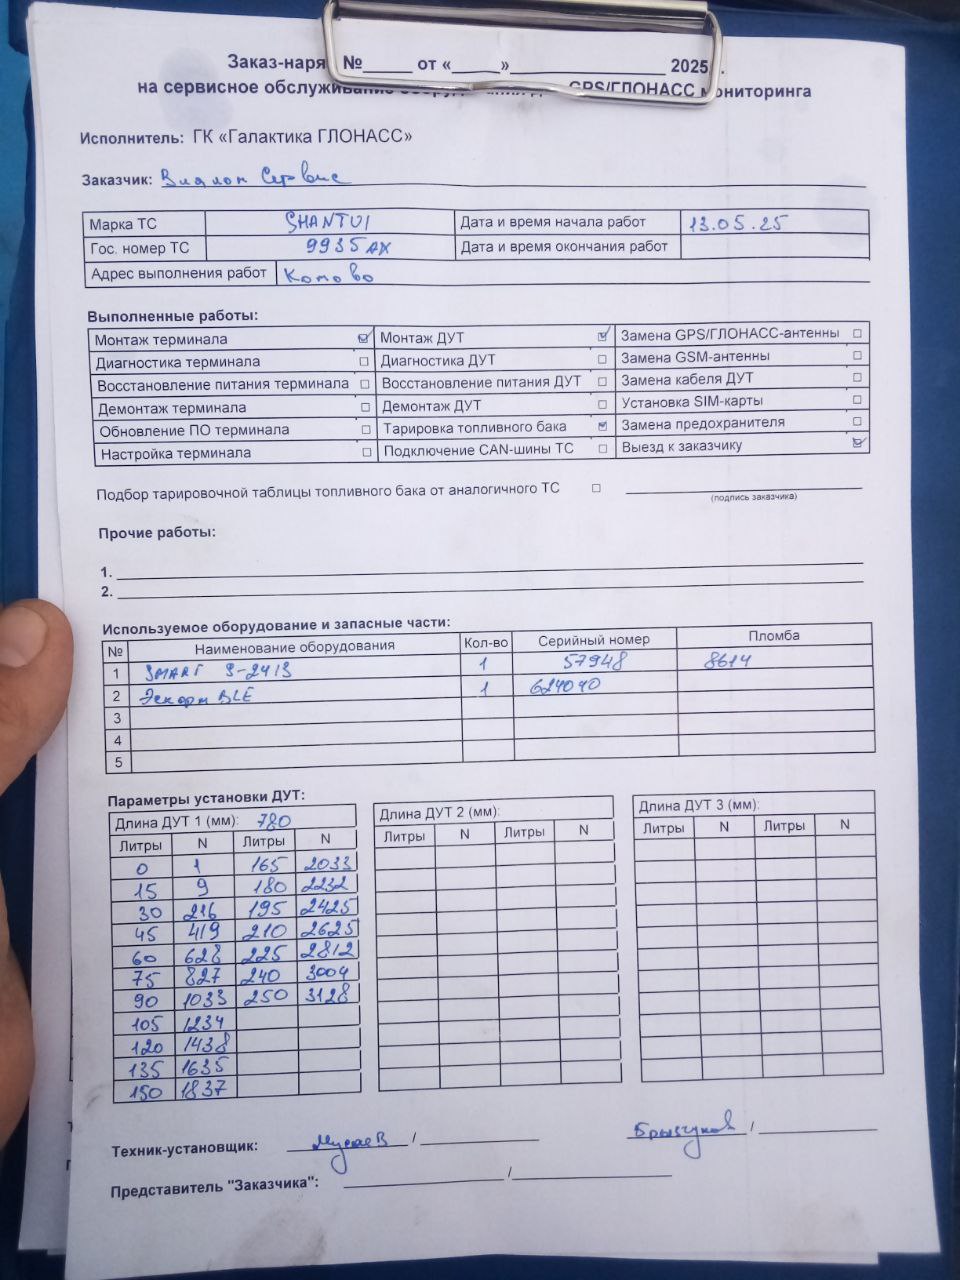 Заказ-наря №_____ от «_____»________________ 2025 .
на сервисное обслуживание GPS/ГЛОНАСС мониторинга
Исполнитель: ГК «Галактика ГЛОНАСС»
Заказчик: Виалон Сервис
Марка ТС SHANTUI Дата и время начала работ 13.05.25
Гос. номер ТС 9935 АХ Дата и время окончания работ
Адрес выполнения работ Комово
Выполненные работы:
Монтаж терминала ☑ Монтаж ДУТ ☑ Замена GPS/ГЛОНАСС-антенны ☐
Диагностика терминала ☐ Диагностика ДУТ ☐ Замена GSM-антенны ☐
Восстановление питания терминала ☐ Восстановление питания ДУТ ☐ Замена кабеля ДУТ ☐
Демонтаж терминала ☐ Демонтаж ДУТ ☐ Установка SIM-карты ☐
Обновление ПО терминала ☐ Тарировка топливного бака ☑ Замена предохранителя ☐
Настройка терминала ☐ Подключение CAN-шины ТС ☐ Выезд к заказчику ☑
Подбор тарировочной таблицы топливного бака от аналогичного ТС ☐
(подпись заказчика)
Прочие работы:
1.
2.
Используемое оборудование и запасные части:
№ Наименование оборудования Кол-во Серийный номер Пломба
1 SMART S-2413 1 57948 8614
2 Эскорт BLE 1 624040
3
4
5
Параметры установки ДУТ:
Длина ДУТ 1 (мм): 780 Длина ДУТ 2 (мм): Длина ДУТ 3 (мм):
Литры N Литры N Литры N Литры N Литры N Литры N
0 1 165 2033
15 9 180 2232
30 216 195 2425
45 419 210 2625
60 628 225 2812
75 827 240 3004
90 1033 250 3128
105 1234
120 1438
135 1635
150 1837
Техник-установщик: Мусаев / Брызгунов /
Представитель "Заказчика": /